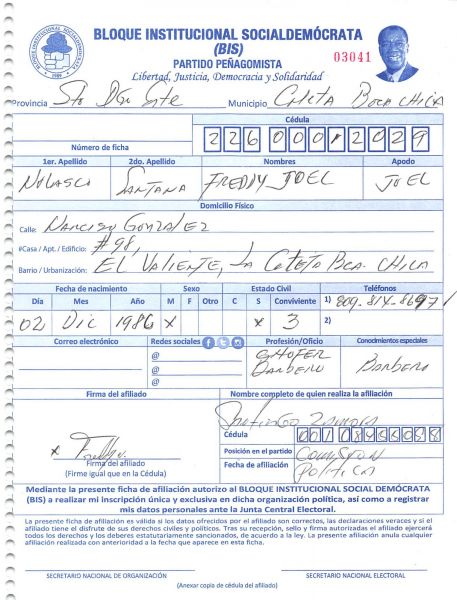 BLOQUE INSTITUCIONAL SOCIALDEMÓCRATA
(BIS)
PARTIDO PEÑAGOMISTA
03041
Libertad, Justicia, Democracia y Solidaridad
Provincia Sto Dgo Este Municipio Caleta Boca Chica
Cédula
Número de ficha 226 0001202 9
1er. Apellido 2do. Apellido Nombres Apodo
Nolasco Santana FREDDY JOEL JOEL
Domicilio Físico
Calle: Narciso Gonzalez
#Casa / Apt. / Edificio: #98,
Barrio / Urbanización: EL VALIENTE, La Caleta Bca. Chica
Fecha de nacimiento Sexo Estado Civil Teléfonos
Día Mes Año M F Otro C S Conviviente 1) 809-814-8697
02 Dic 1986 x x 3 2)
Correo electrónico Redes sociales Profesión/Oficio Conocimientos especiales
@ CHOFER
@ Barbero Barbero
@
Firma del afiliado Nombre completo de quien realiza la afiliación
Santiago Zamora
Cédula 001
x Posición en el partido Comision
Firma del afiliado Fecha de afiliación Politica
(Firme igual que en la Cédula)
Mediante la presente ficha de afiliación autorizo al BLOQUE INSTITUCIONAL SOCIAL DEMÓCRATA
(BIS) a realizar mi inscripción única y exclusiva en dicha organización política, así como a registrar
mis datos personales ante la Junta Central Electoral.
La presente ficha de afiliación es válida si los datos ofrecidos por el afiliado son correctos, las declaraciones veraces y si el
afiliado tiene el disfrute de sus derechos civiles y políticos. Tras su recepción, sello y firma autorizadas el afiliado ejercerá
todos los derechos y los deberes estatutariamente sancionados, de acuerdo a la ley. La presente afiliación anula cualquier
afiliación realizada con anterioridad a la fecha que aparece en esta ficha.
SECRETARIO NACIONAL DE ORGANIZACIÓN SECRETARIO NACIONAL ELECTORAL
(Anexar copia de cédula del afiliado)